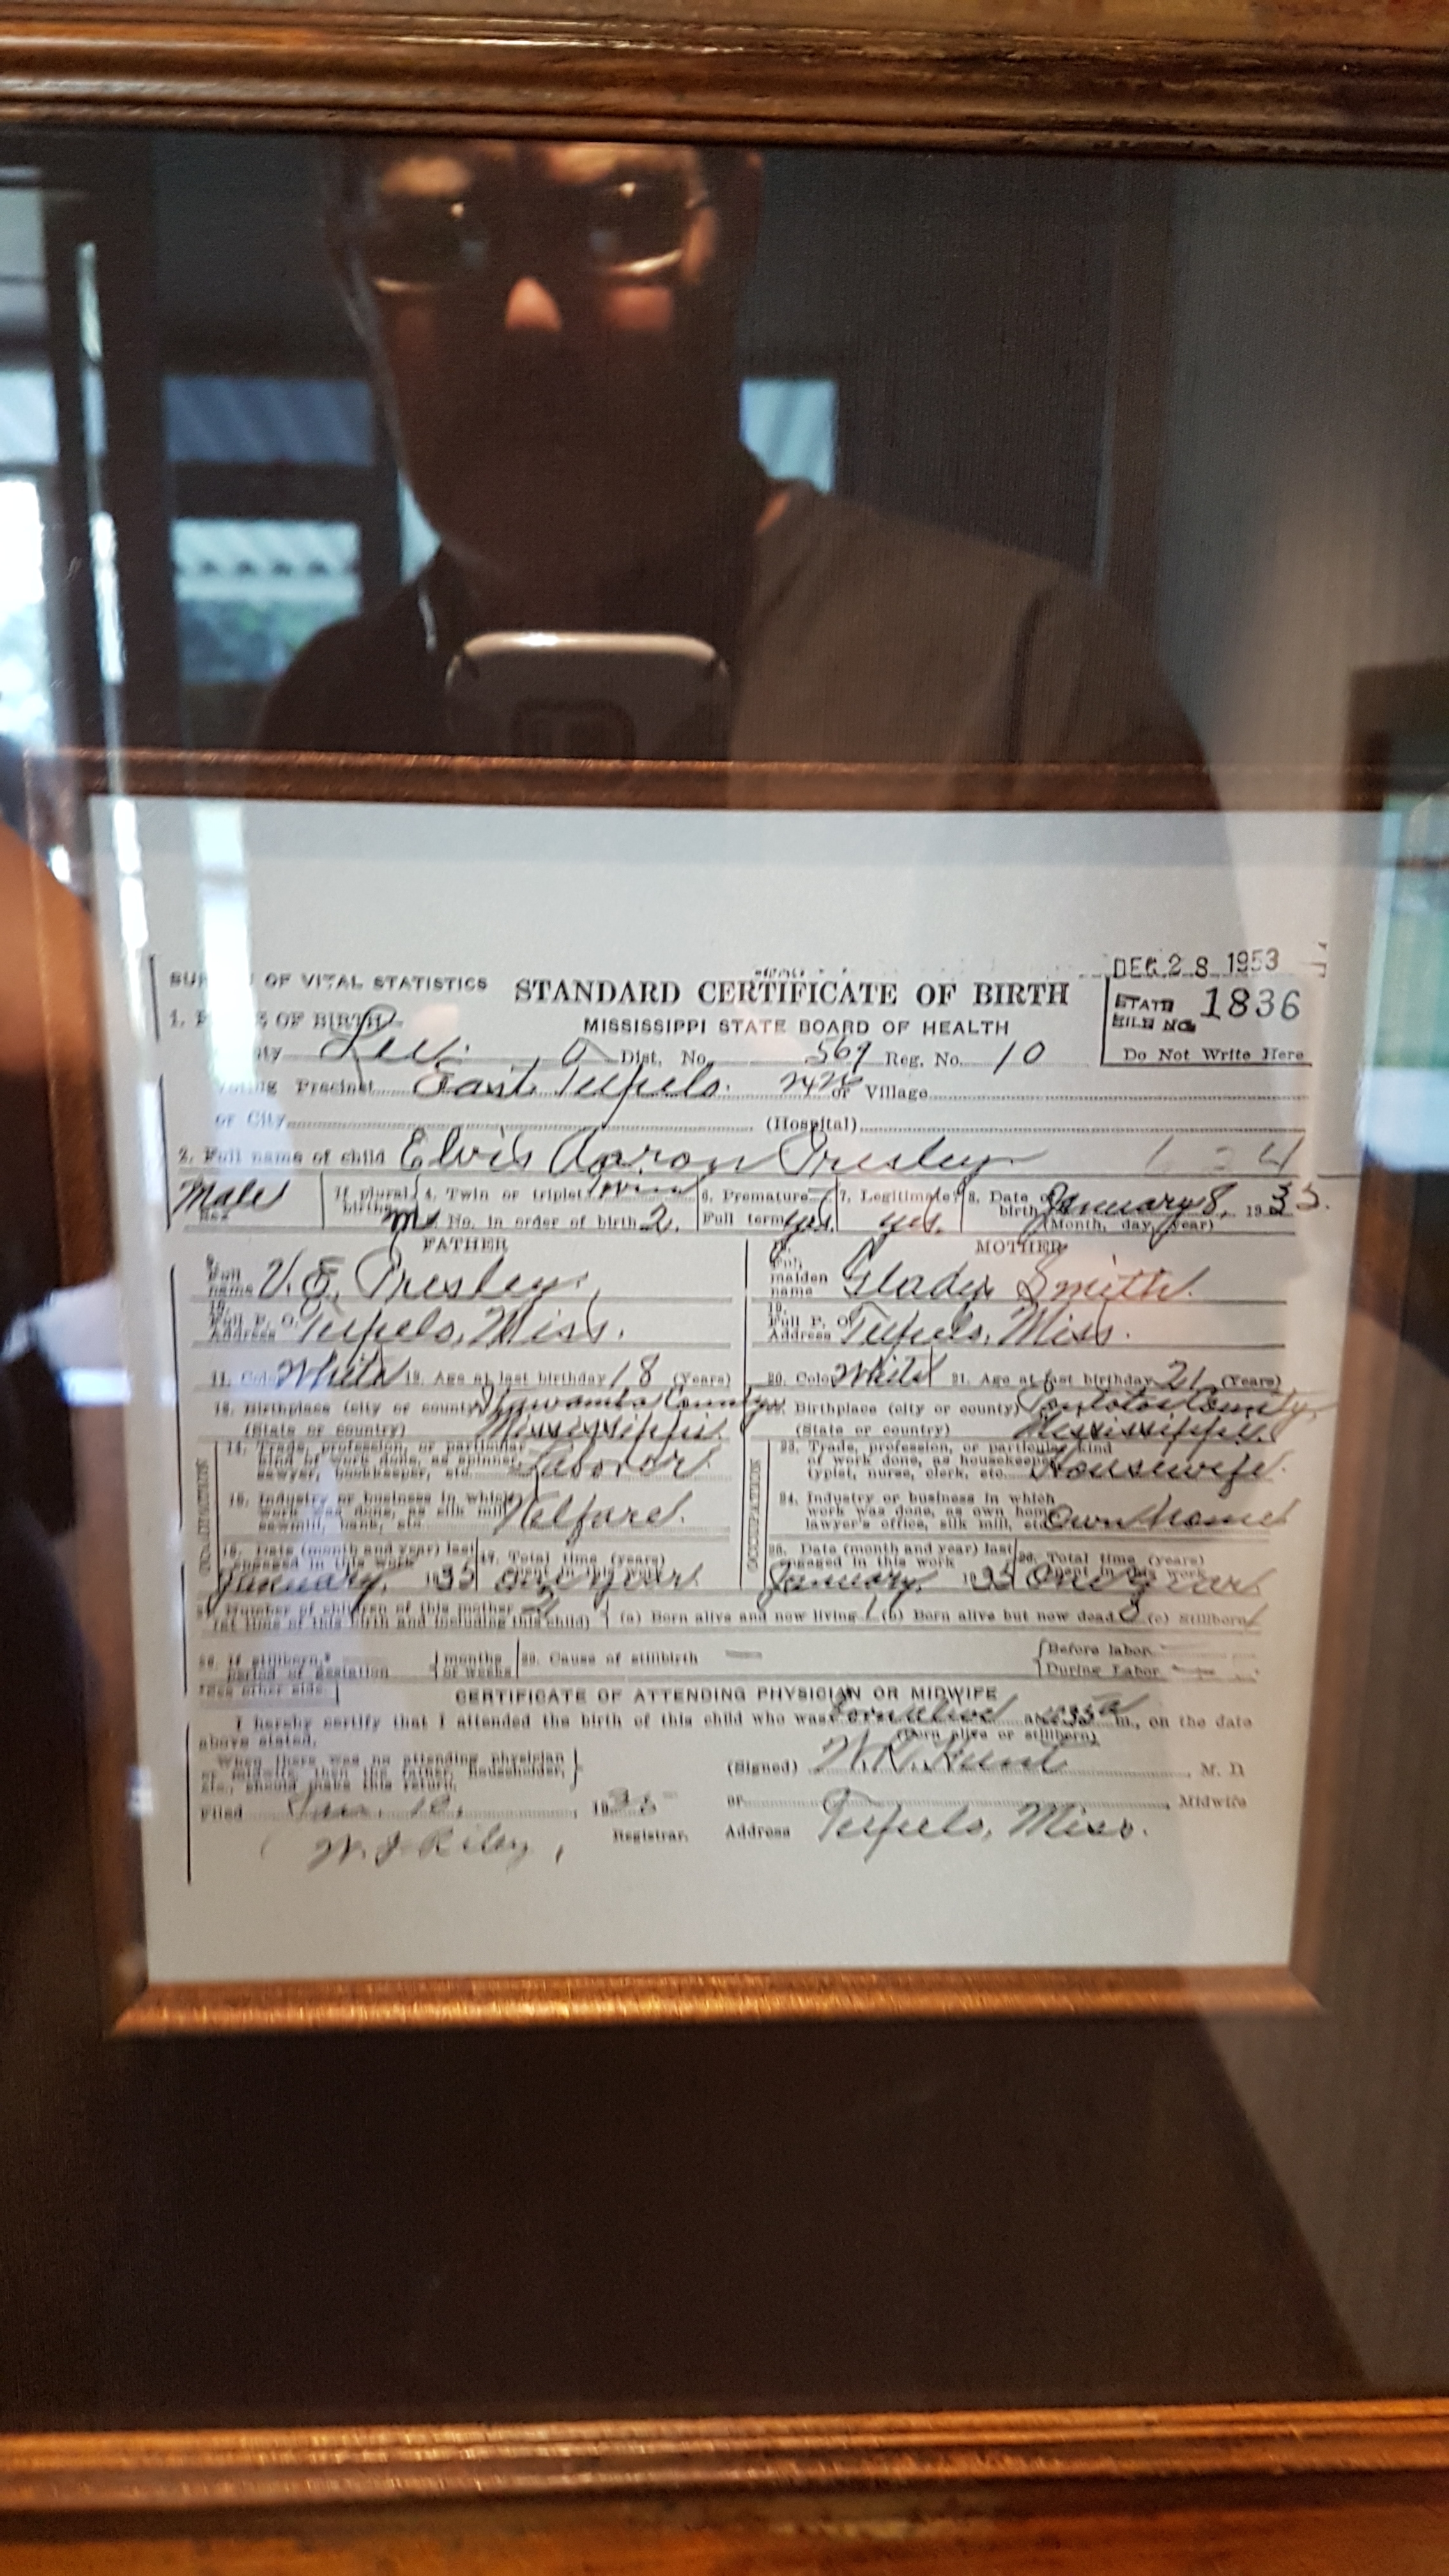 DEC 28 1953
OF VITAL STATISTICS STANDARD CERTIFICATE OF BIRTH
STATE FILE NO. 1836
1. OF BIRTH MISSISSIPPI STATE BOARD OF HEALTH
Lee Dist. No. 569 Reg. No. 10 Do Not Write Here
Voting Precinct East Tupelo. or Village
or City (Hospital)
2. Full name of child Elvis Aaron Presley
Male Sex If plural births 4. Twin or triplet Twin No. in order of birth 2. 6. Premature Full term yes. 7. Legitimate? yes. 8. Date of birth January 8, 1935. (Month, day, year)
FATHER MOTHER
9. Full name V. E. Presley. Full maiden name Gladys Smith.
10. Full P. O. Address Tupelo, Miss. 19. Full P. O. Address Tupelo, Miss.
11. White 12. Age at last birthday 18 (Years) 20. Color White 21. Age at last birthday 21 (Years)
13. Birthplace (city or county) Itawamba County 22. Birthplace (city or county) Pontotoc County,
(State or country) Mississippi. (State or country) Mississippi.
14. Trade, profession, or particular kind of work done, as spinner, sawyer, bookkeeper, etc. Laborer 23. Trade, profession, or particular kind of work done, as housekeeper, typist, nurse, clerk, etc. Housewife.
15. Industry or business in which work was done, as silk mill, sawmill, bank, etc. Welfare. 24. Industry or business in which work was done, as own home, lawyer's office, silk mill, etc. Own Home
OCCUPATION OCCUPATION
16. Date (month and year) last engaged in this work January, 1935 17. Total time (years) spent in this work One year 25. Date (month and year) last engaged in this work January, 1935 26. Total time (years) spent in this work One year
27. Number of children of this mother 2 (at time of this birth and including this child) (a) Born alive and now living 1 (b) Born alive but now dead 0 (c) Stillborn 1
28. If stillborn, period of gestation months or weeks 29. Cause of stillbirth — Before labor During Labor
CERTIFICATE OF ATTENDING PHYSICIAN OR MIDWIFE
I hereby certify that I attended the birth of this child who was born alive at m., on the date
above stated. (Born alive or stillborn)
When there was no attending physician or midwife, then the father, householder, etc., should make this return. (Signed) W. R. Hunt, M. D.
Filed Jan. 10, 1935 or Midwife
W. J. Riley, Registrar. Address Tupelo, Miss.